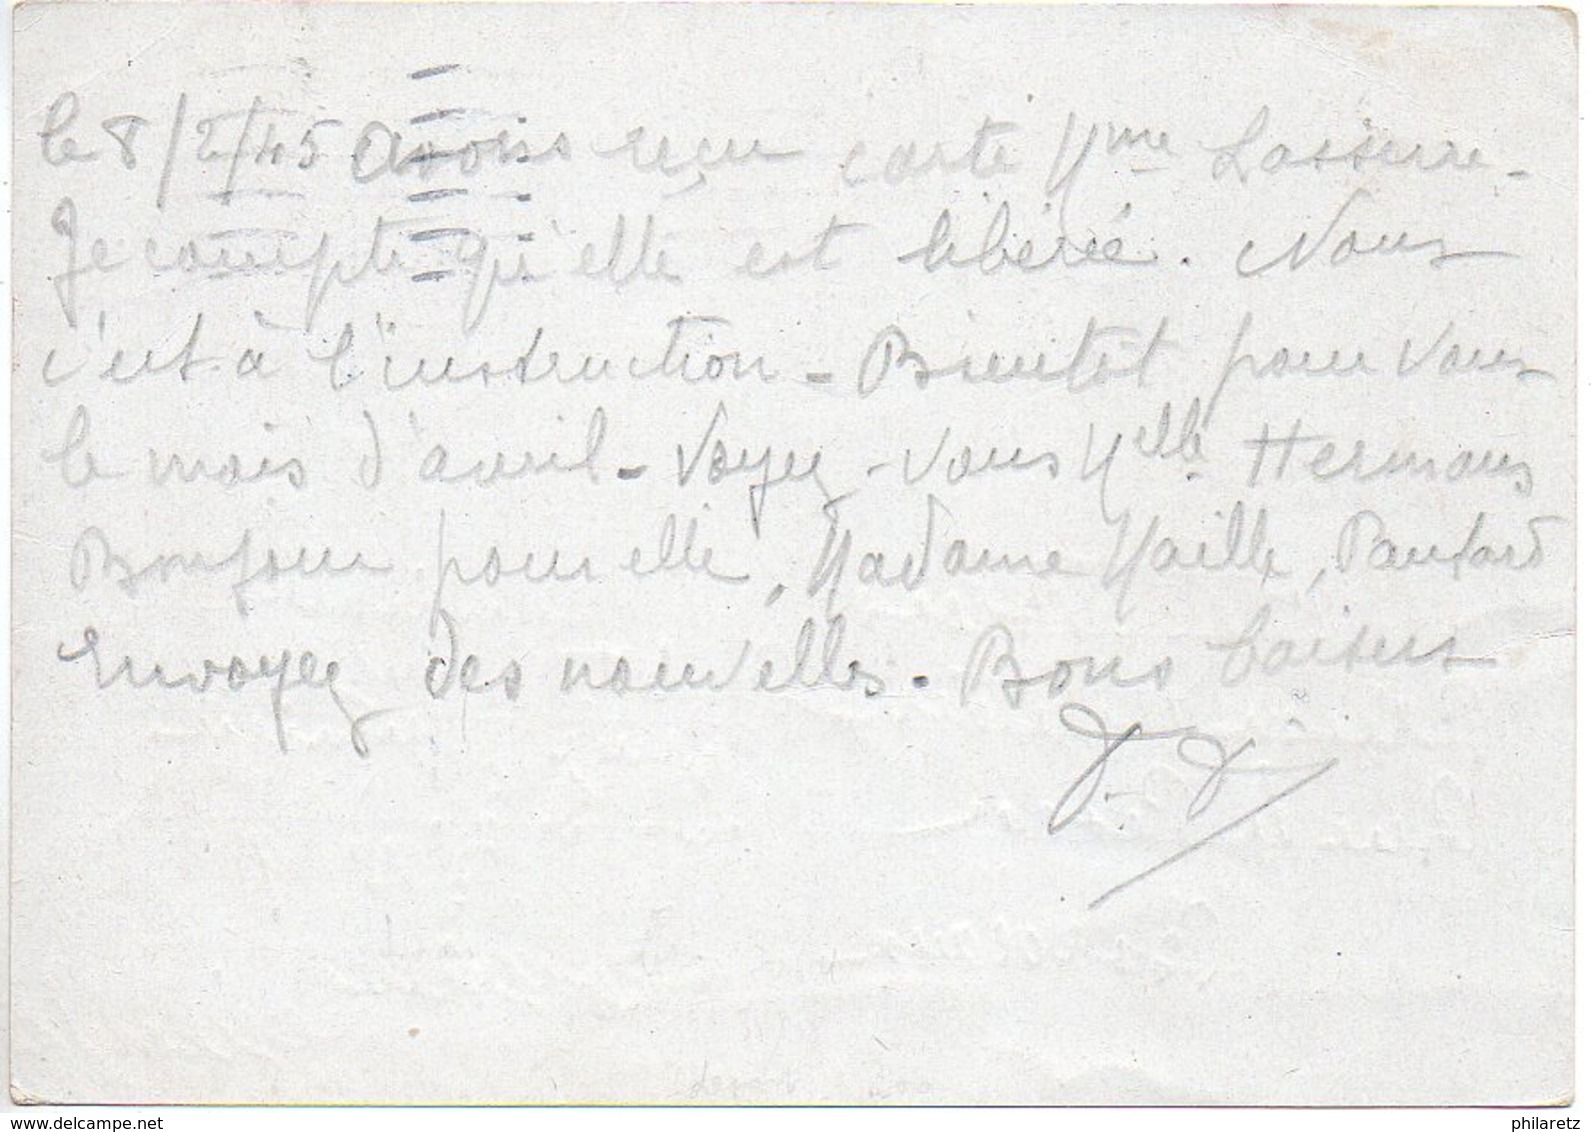 le 8/2/45 avons reçu carte Mme Lasserre.
Je compte qu'elle est libérée. Nous
c'est à l'instruction - Bientôt pour vous
le mois d'avril - Voyez-vous Melle Hermans
Bonjour pour elle, Madame Maille, Pautard
Envoyez des nouvelles. Bons baisers
www.delcampe.net
philaretz